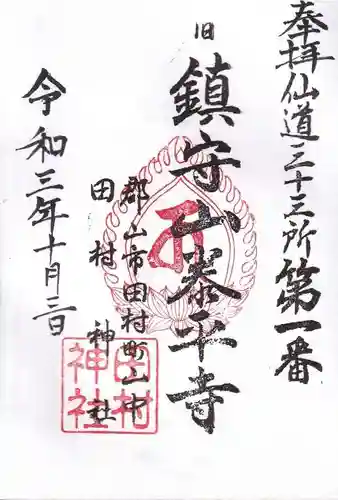 奉拝仙道三十三所第一番
旧
鎮守山泰平寺
郡山市田村町山中
田村神社
令和三年十月三日
田村神社